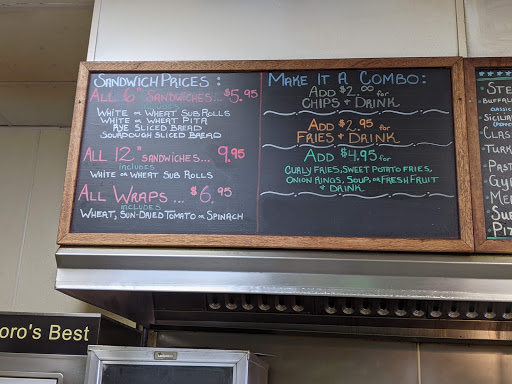 SANDWICH PRICES:
ALL 6" SANDWICHES... $5.95
INCLUDES
WHITE OR WHEAT SUB ROLLS
WHITE OR WHEAT PITA
RYE SLICED BREAD
SOURDOUGH SLICED BREAD
ALL 12" SANDWICHES... 9.95
INCLUDES
WHITE OR WHEAT SUB ROLLS
ALL WRAPS... $6.95
INCLUDES
WHEAT, SUN-DRIED TOMATO OR SPINACH
MAKE IT A COMBO:
ADD $2.00 for
CHIPS & DRINK
ADD $2.95 for
FRIES & DRINK
ADD $4.95 for
CURLY FRIES, SWEET POTATO FRIES,
ONION RINGS, SOUP, OR FRESH FRUIT
& DRINK
STE
BUFFAL
CLASSIC
SICILIA
CLASS
TURK
PAST
GY
ME
SU
PIZ
oro's Best